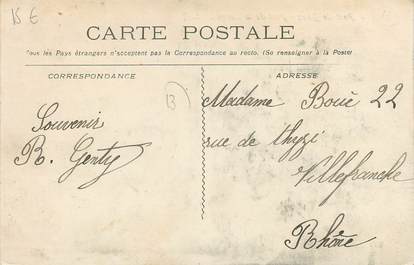 15 €
CARTE POSTALE
Tous les Pays étrangers n'acceptent pas la Correspondance au recto. (Se renseigner à la Poste)
CORRESPONDANCE
ADRESSE
B
Souvenir
R. Genty
Madame Bouè 22
rue de thyzi
Villefranche
Rhône